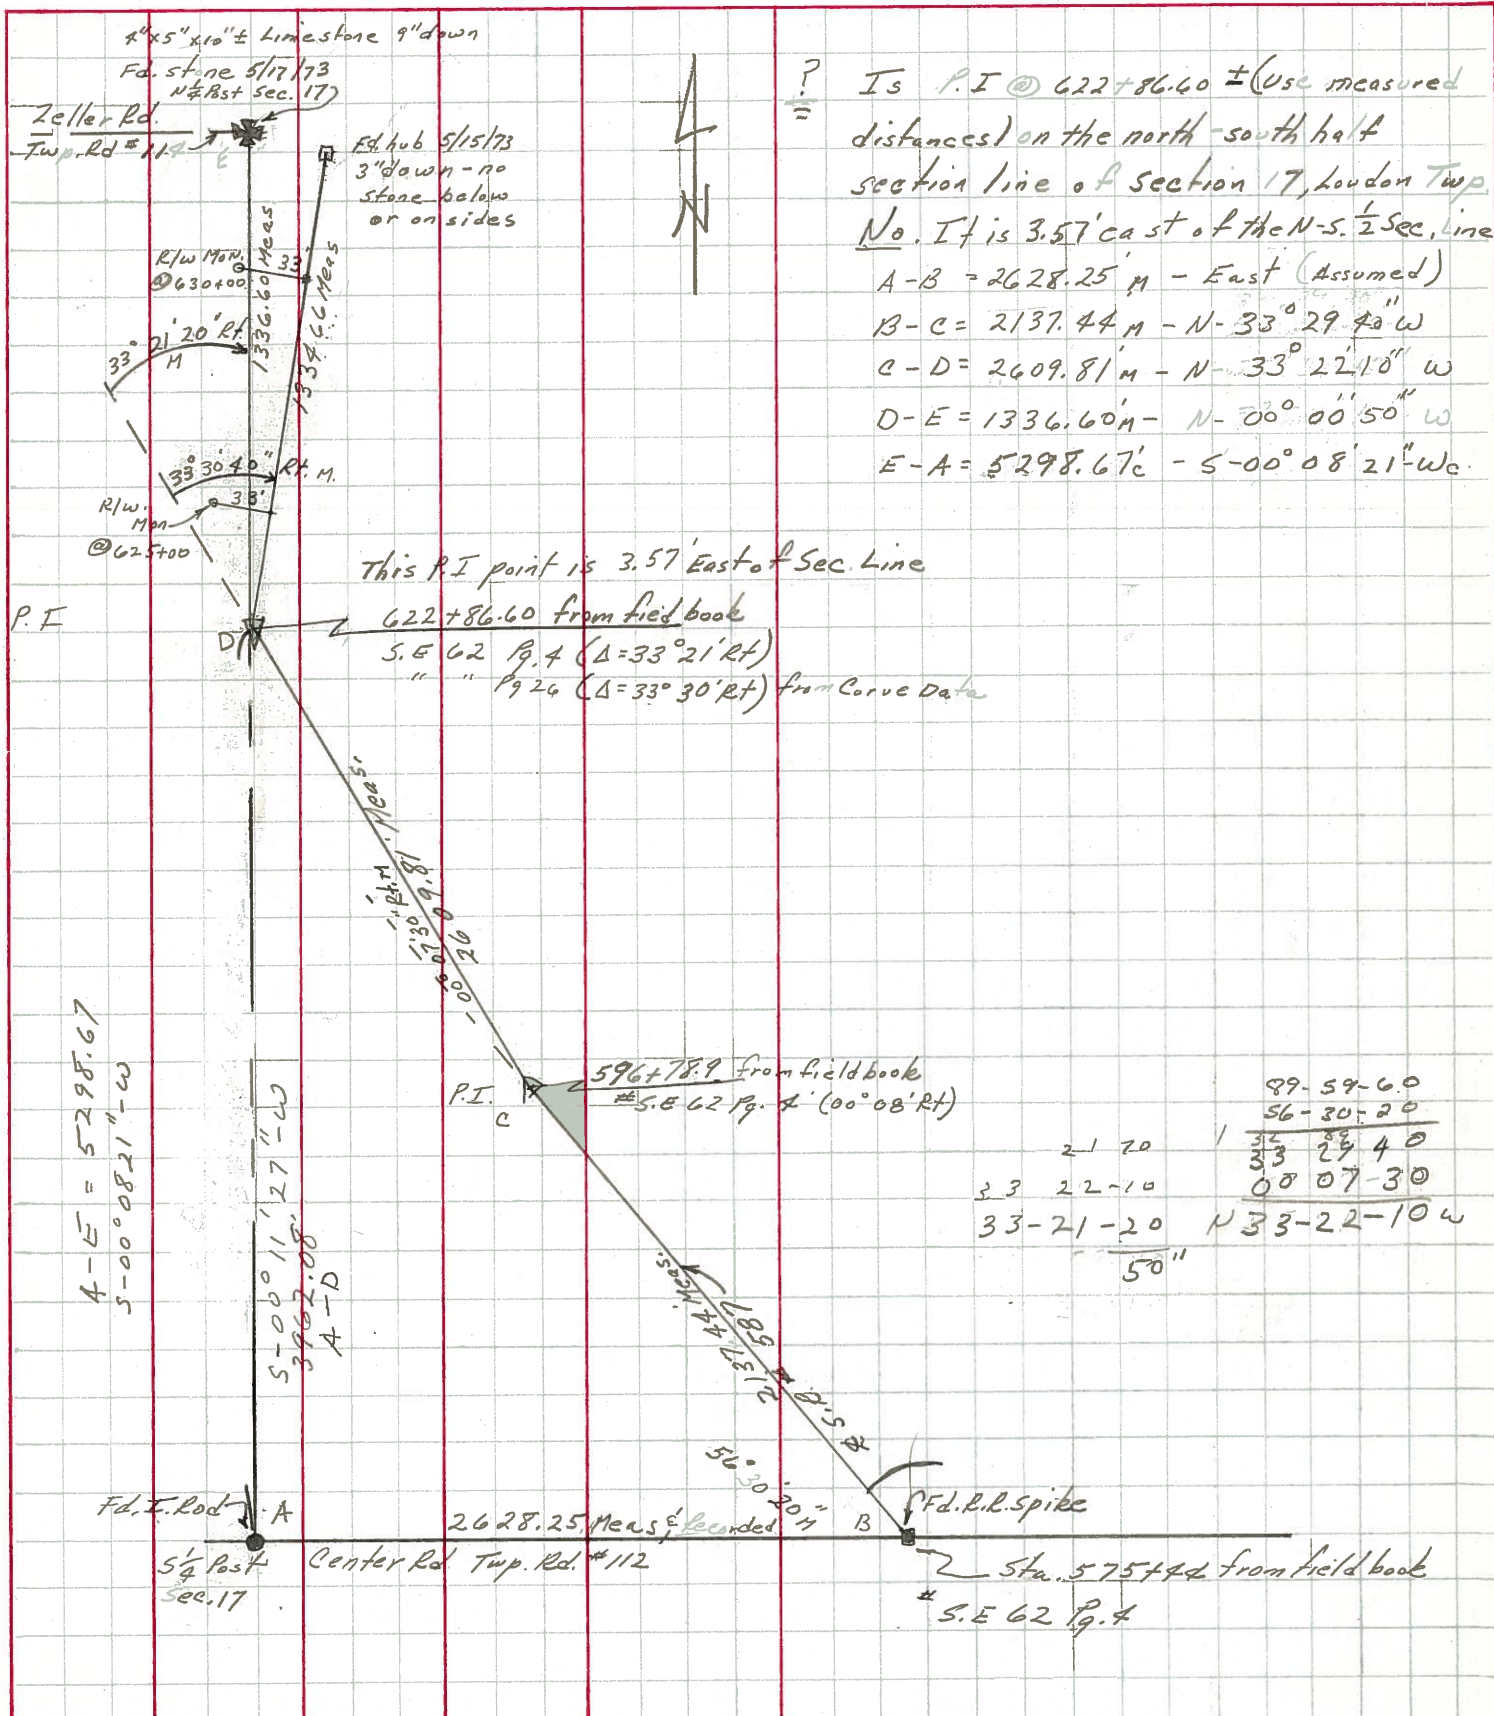 4"x5"x10"± Limestone 9" down
Fd. stone 5/17/73
N¼ Post Sec. 17
Zeller Rd.
Twp. Rd #114
E
Fd. hub 5/15/73
3" down - no
stone below
or on sides
R/W Mon.
@ 630+00
33'
1336.60 Meas
1334.66 Meas
33° 21' 20" Rt.
M
33° 30' 40" Rt. M.
33'
R/W.
Mon
@ 625+00
? Is P.I @ 622+86.60 ± (Use measured
distances) on the north-south half
section line of Section 17, Loudon Twp.
No. It is 3.57' east of the N-S. ½ Sec. Line
A-B = 2628.25' M - East (Assumed)
B-C = 2137.44 M - N-33° 29' 40" W
C-D = 2609.81' M - N-33° 22' 10" W
D-E = 1336.60' M - N-00° 00' 50" W
E-A = 5298.67' c - S-00° 08' 21"-W c.
This P.I point is 3.57' East of Sec. Line
P.I
D
622+86.60 from field book
S.E 62 Pg. 4 (Δ=33° 21' Rt)
" " Pg 26 (Δ=33° 30' Rt) from Curve Data
2609.81 Meas.
00° 07' 30" Rt. M
P.I.
C
596+78.9 from field book
# S.E 62 Pg. 4 (00° 08' Rt)
A-E = 5298.67
S-00° 08 21"-W
S-00° 11' 27"-W
3962.08'
A-D
89-59-60
56-30-20
33 29 40
00 07-30
N 33-22-10 W
21 70
33 22-10
33-21-20
50"
2137.44 Meas.
S.R. # 587
56° 30' 20"
M
Fd. I. Rod
A
2628.25 Meas. & Recorded
B
Fd. R.R. Spike
S¼ Post
Sec. 17
Center Rd. Twp. Rd. #112
Sta. 575+44 from field book
# S.E 62 Pg. 4